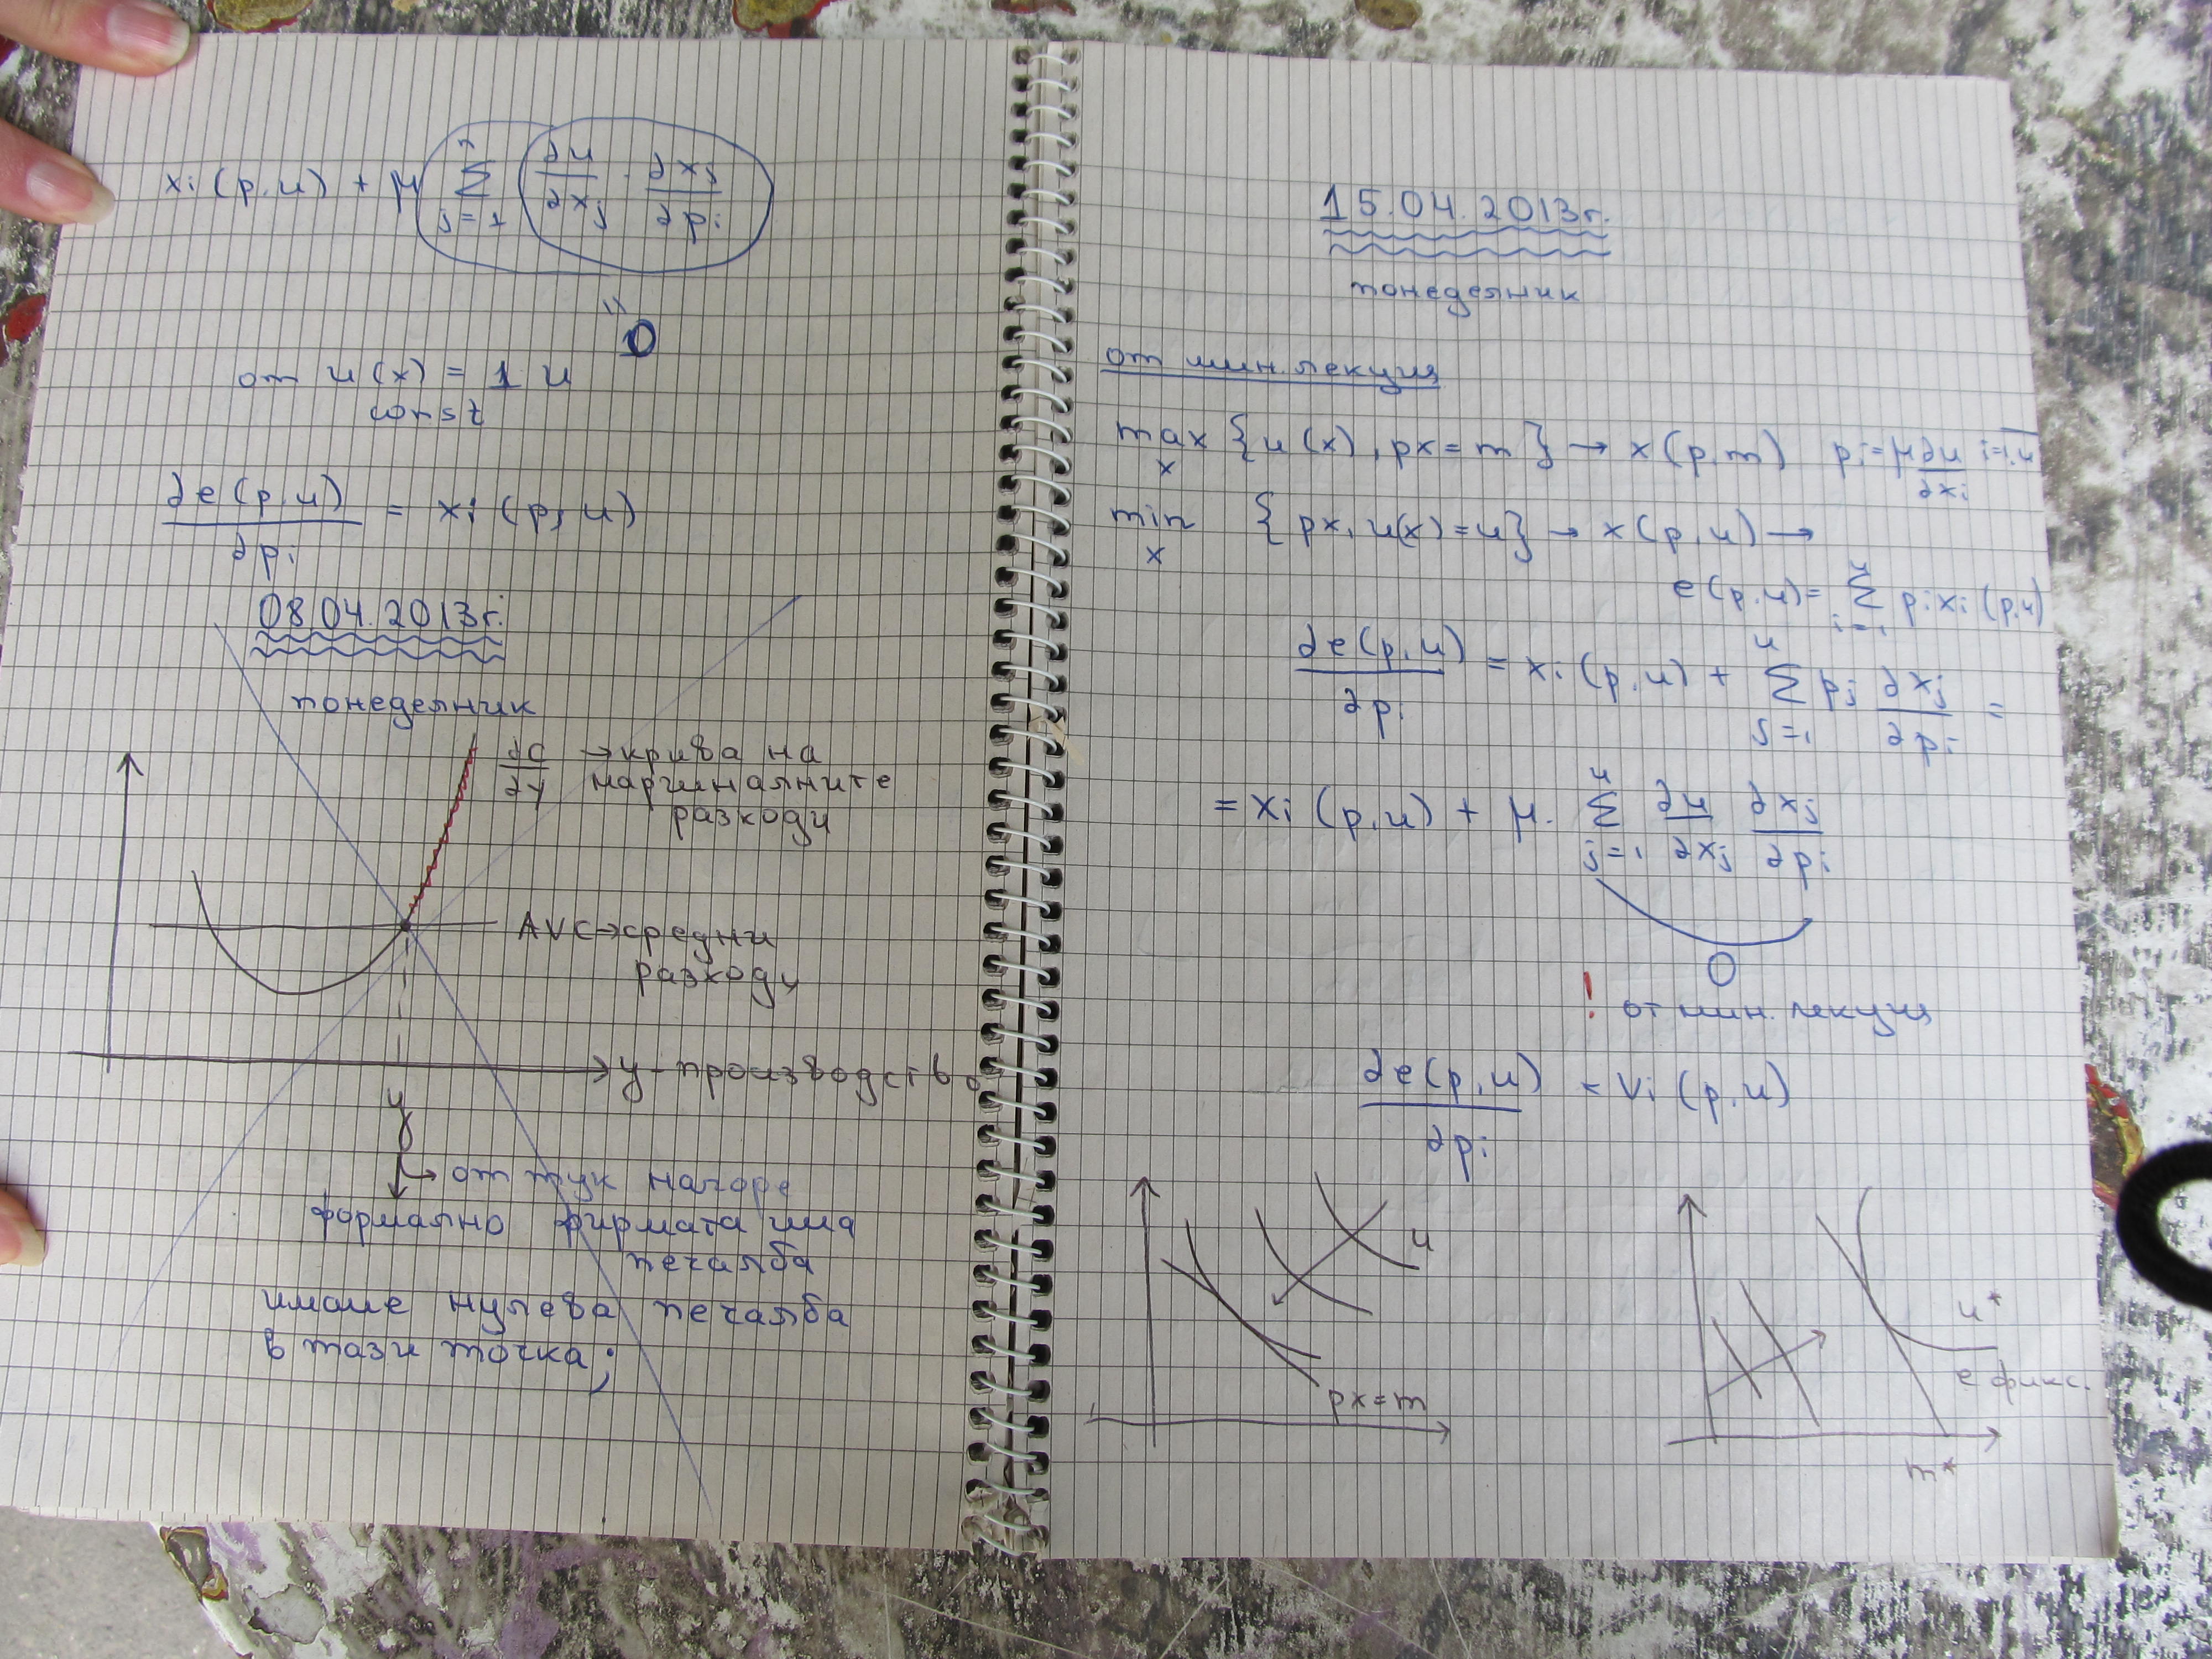 xi (p, u) + μ n Σ j=1 ∂u/∂xj · ∂xj/∂pi
"
0
от u(x) = 1 u
const
∂e(p, u)/∂pi = xi (p, u)
08.04.2013г.
понеделник
∂C/∂y → крива на
маргиналните
разходи
AVC → средни
разходи
y - производство
y
от тук нагоре
формално фирмата има
печалба
имаме нулева печалба
в тази точка;
15.04.2013г.
понеделник
от мин. лекция
max x {u(x), px = m} → x(p, m) pi = μ ∂u/∂xi i=1,n
min x {px, u(x) = u} → x(p, u) →
e(p, u) = n Σ i=1 pi xi (p, u)
∂e(p, u)/∂pi = xi (p, u) + n Σ j=1 pj ∂xj/∂pi =
= xi (p, u) + μ. n Σ j=1 ∂u/∂xj ∂xj/∂pi
0
! от мин. лекция
∂e(p, u)/∂pi = Vi (p, u)
u
px = m
u*
e фикс.
m*